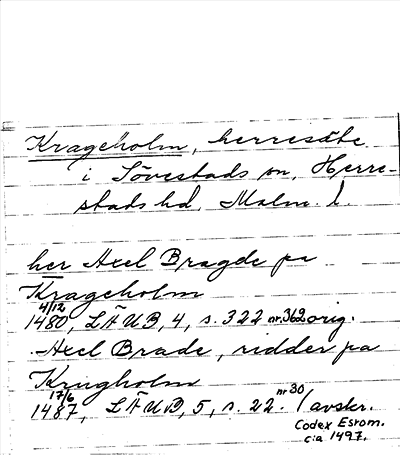 Krageholm, herresäte
i Sövestads sn, Herre-
stads hd, Malm. l.
her Axel Bragde pa
Krageholm
4/12
1480, LÄUB, 4, s. 322 nr. 362 orig.
Axel Brade, ridder pa
Krugholm
17/6
1487, LÄUB, 5, s. 22. nr 30 / avskr.
Codex Esrom.
c:a 1497.